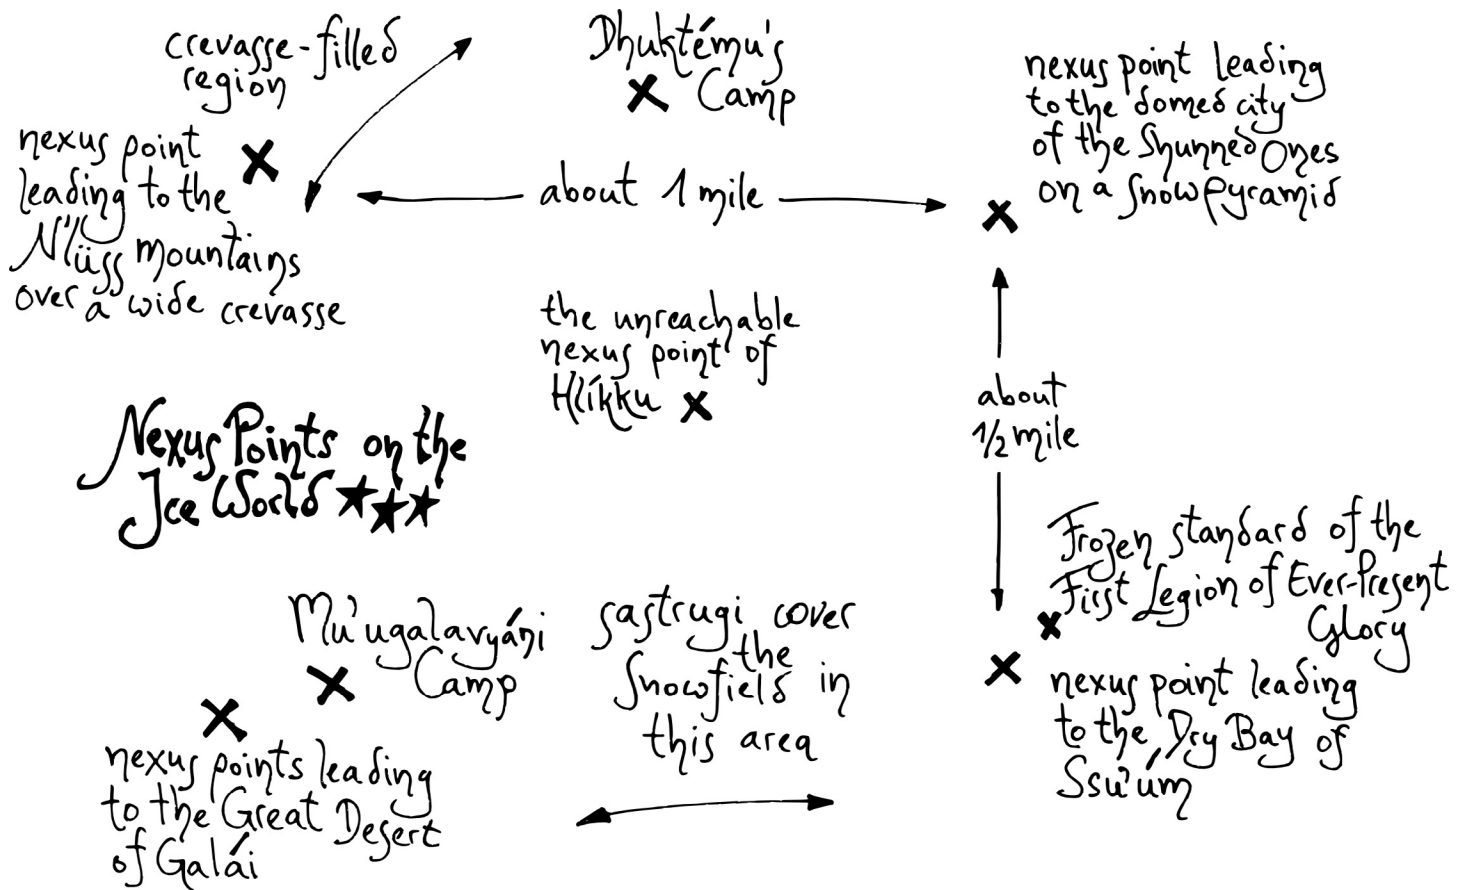 crevasse-filled
region
Dhuktému's
Camp
nexus point leading
to the domed city
of the Shunned Ones
on a Snow Pyramid
nexus point
leading to the
N'lüss mountains
over a wide crevasse
about 1 mile
the unreachable
nexus point of
Hlíkku
about
1/2 mile
Nexus Points on the
Ice World
Frozen standard of the
First Legion of Ever-Present
Glory
Mu'ugalavyáni
Camp
sastrugi cover
the
Snowfield in
this area
nexus point leading
to the Dry Bay of
Ssu'úm
nexus points leading
to the Great Desert
of Galái